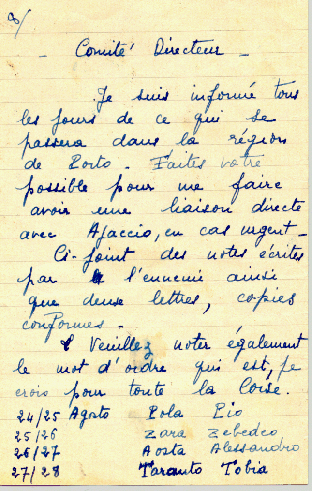 8/
Comité Directeur -
Je suis informé tous
les jours de ce qui se
passera dans la région
de Porto - Faites votre
possible pour me faire
avoir une liaison directe
avec Ajaccio, en cas urgent -
Ci-joint des notes écrites
par l'ennemie ainsi
que deux lettres, copies
conformes -
Veuillez noter également
le mot d'ordre qui est, je
crois pour toute la Corse.
24/25 Agosto Pola Pio
25/26 Zara Zebedeo
26/27 Aosta Alessandro
27/28 Taranto Tobia